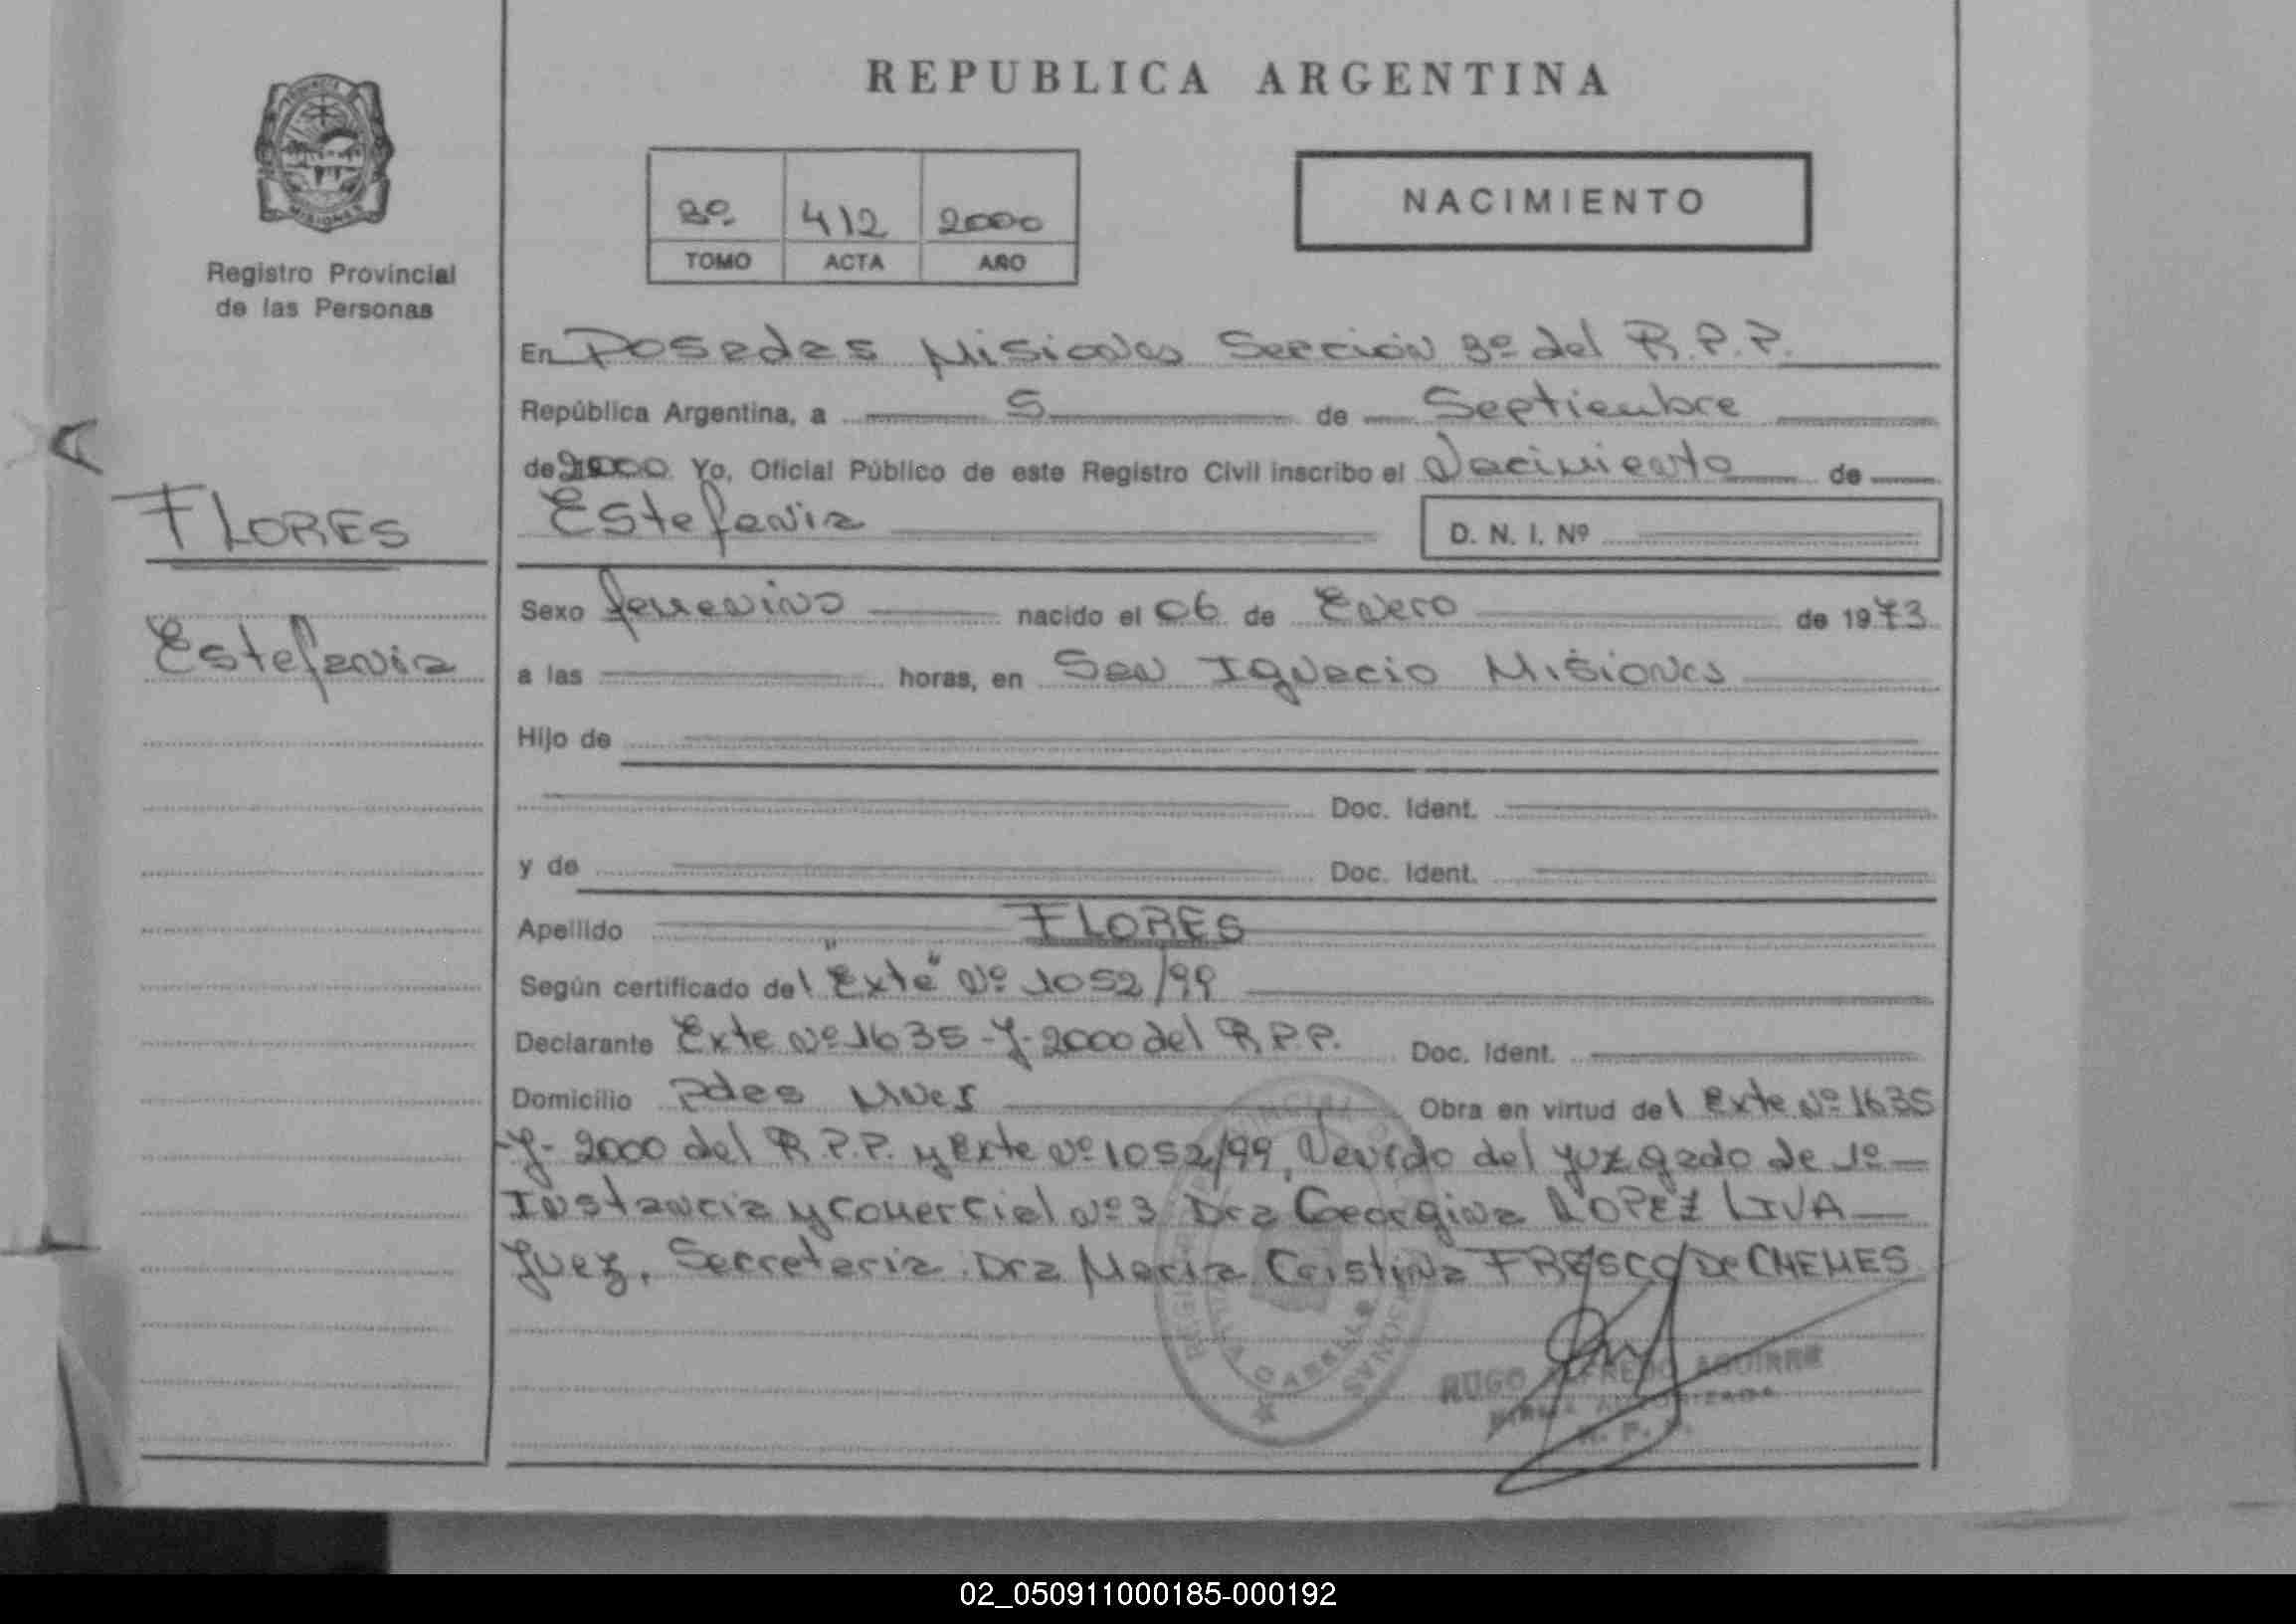 REPUBLICA ARGENTINA
PROVINCIA
MISIONES
Registro Provincial
de las Personas
3º 412 2000
TOMO ACTA AÑO
NACIMIENTO
En Posadas Misiones Sección 3º del R.P.P.
República Argentina, a 5 de Septiembre
de 2000 Yo, Oficial Público de este Registro Civil inscribo el Nacimiento de
Estefania D. N. I. Nº
FLORES
Estefania
Sexo femenino nacido el 06 de Enero de 1973
a las horas, en San Ignacio Misiones
Hijo de
Doc. Ident.
y de Doc. Ident.
Apellido FLORES
Según certificado del "Exte" Nº 1052/99
Declarante Exte Nº 1635-Y-2000 del R.P.P. Doc. Ident.
Domicilio Pdas Mnes Obra en virtud del Exte Nº 1635
-Y-2000 del R.P.P. y Exte Nº 1052/99, Venido del Juzgado de 1º
Instancia y Comercial Nº 3 Dra Georgina LOPEZ LIVA
Juez, Secretaria Dra Maria Cristina FRESCO De CHEMES
VILLA CABELLO
HUGO ALFREDO AGUIRRE
FIRMA AUTORIZADA
R. P. P.
02_050911000185-000192